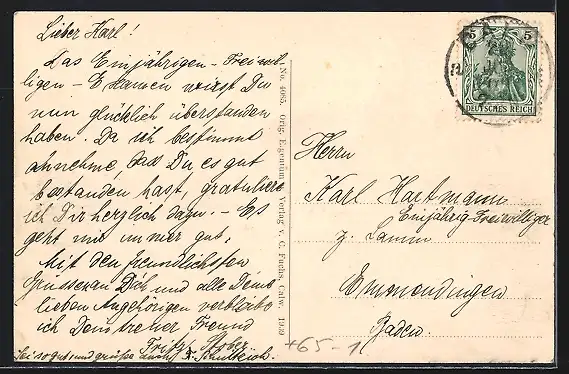 Lieber Karl!
Das Einjährigen-Freiwil-
ligen-Examen wirst Du
nun glücklich überstanden
haben. Da ich bestimmt
annehme, dass Du es gut
bestanden hast, gratuliere
ich Dir herzlich dazu. - Es
geht mir immer gut,
Mit den freundlichsten
Grüssen an Dich und alle Deine
lieben Angehörigen verbleibe
ich Dein treuer Freund
Fritz Stober
Sei so gut und grüße auch
No. 4085. Orig. Eigentum u. Verlag v. C. Fuchs, Calw. 1909
5 5
DEUTSCHES REICH
Herrn
Karl Hartmann
Einjährig-Freiwilliger
z. Lamm
Emmendingen
Baden.